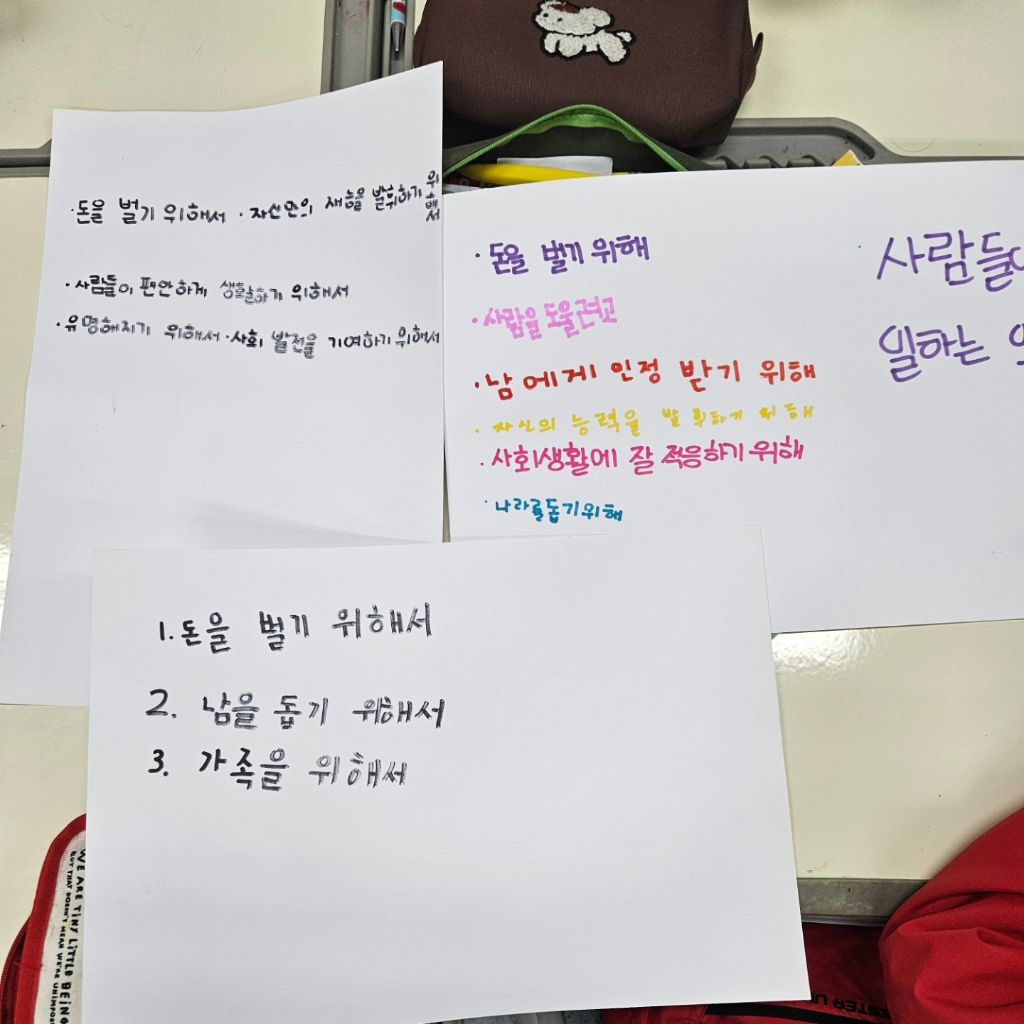 ·돈을 벌기 위해서 ·자신만의 재능을 발휘하기 위해서
·사람들이 편안하게 생활하기 위해서
·유명해지기 위해서 ·사회 발전을 기여하기 위해서
·돈을 벌기 위해
·사람을 도울려고
·남에게 인정 받기 위해
·자신의 능력을 발휘하기 위해
·사회생활에 잘 적응하기 위해
·나라를 돕기 위해
사람들이
일하는
1. 돈을 벌기 위해서
2. 남을 돕기 위해서
3. 가족을 위해서
WE ARE TiNY LiTTLE BEiNG
BUT THAT DOESN'T MEAN WE'RE